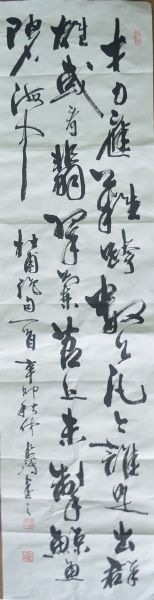 才力應難跨數公凡今誰是出群
雄或看翡翠蘭苕上未掣鯨魚
碧海中
杜甫詩句一首 辛卯秋什 書之